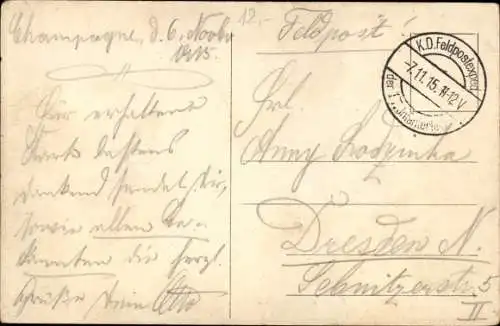 Champagne, d. 6. Novbr
1915.
Für erhaltene
Karte bestens
dankend sendet dir,
sowie allen Be-
kannten die herzl.
Grüße Dein Otto
12,-
Feldpost
K.D. Feldpostexped.
-7.11.15. 11-12 V
der 1. Infanterie
Frl.
Anny
Dresden N.
Sebnitzerstr. 5
II